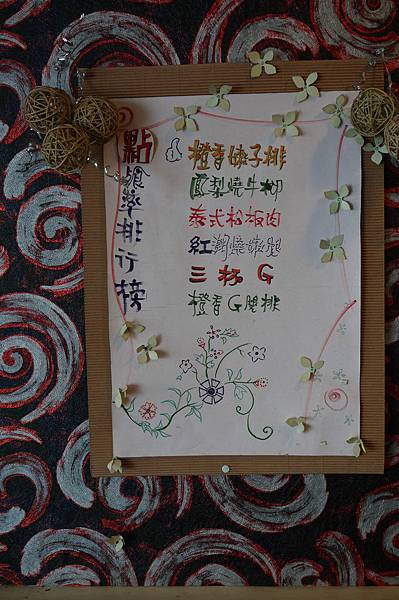 點餐率排行榜
橙香妹子排
鳳梨燒牛柳
泰式松板肉
紅潮燒嫩腿
三杯G
橙香G腿排